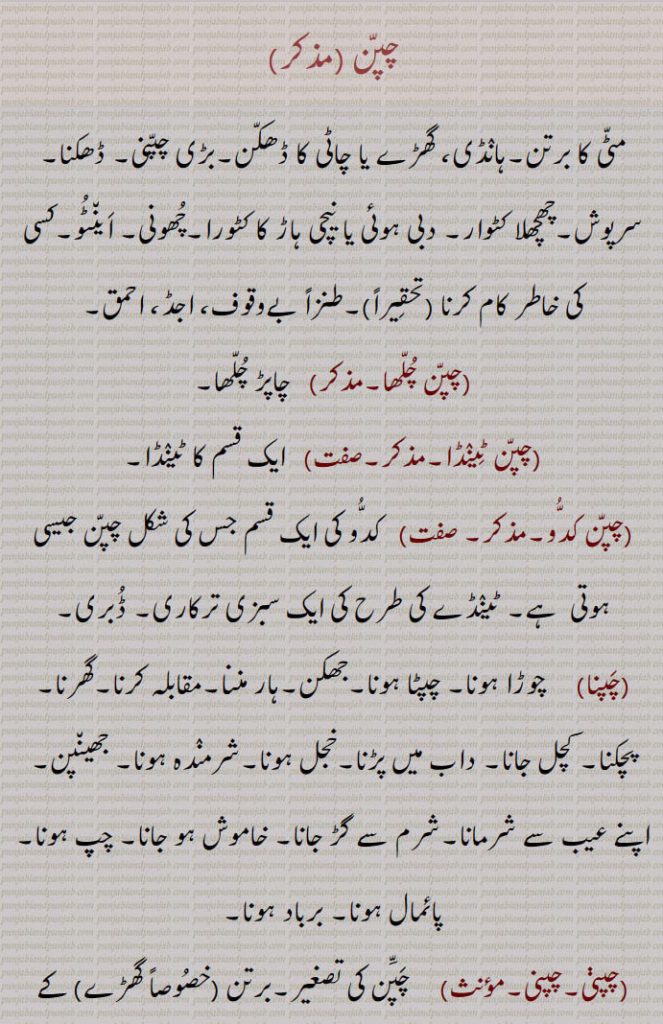 چپّن (مذکر)
مٹّی کا برتن۔ہانْڈی، گھڑے یا چاٹی کا ڈھکّن۔بڑی چپّنی۔ ڈھکنا۔
سرپوش۔چھچھلا کٹوار۔ دبی ہوئی یا نیچی ہاڑ کا کٹورا۔چُھونی۔ اَینّٹُو۔کسی
کی خاطر کام کرنا (تحقِیراً)۔طنزاً بےوقوف، اجڈ، احمق۔
(چپّن چُلّھا۔مذکر) چاپڑ چُلّھا۔
(چپّن ٹِینْڈا۔مذکر۔صفت) ایک قسم کا ٹینْڈا۔
(چپّن کدُّو۔مذکر۔ صفت) کدُّو کی ایک قسم جس کی شکل چپّن جیسی
ہوتی ہے۔ ٹینْڈے کی طرح کی ایک سبزی ترکاری۔ ڈُبری۔
(چَپنا) چوڑا ہونا۔ چپٹا ہونا۔جھکن۔ہار مننا۔مقابلہ کرنا۔گھرنا۔
پچکنا۔ کچل جانا۔ داب میں پڑنا۔خجل ہونا۔شرمنْدہ ہونا۔ جھینّپن۔
اپنے عیب سے شرمانا۔شرم سے گڑ جانا۔ خاموش ہو جانا۔ چپ ہونا۔
پائمال ہونا۔ برباد ہونا۔
(چپنی۔چپنی۔مؤنث) چَپِّن کی تصغیر۔برتن (خصُوصاً گھڑے) کے